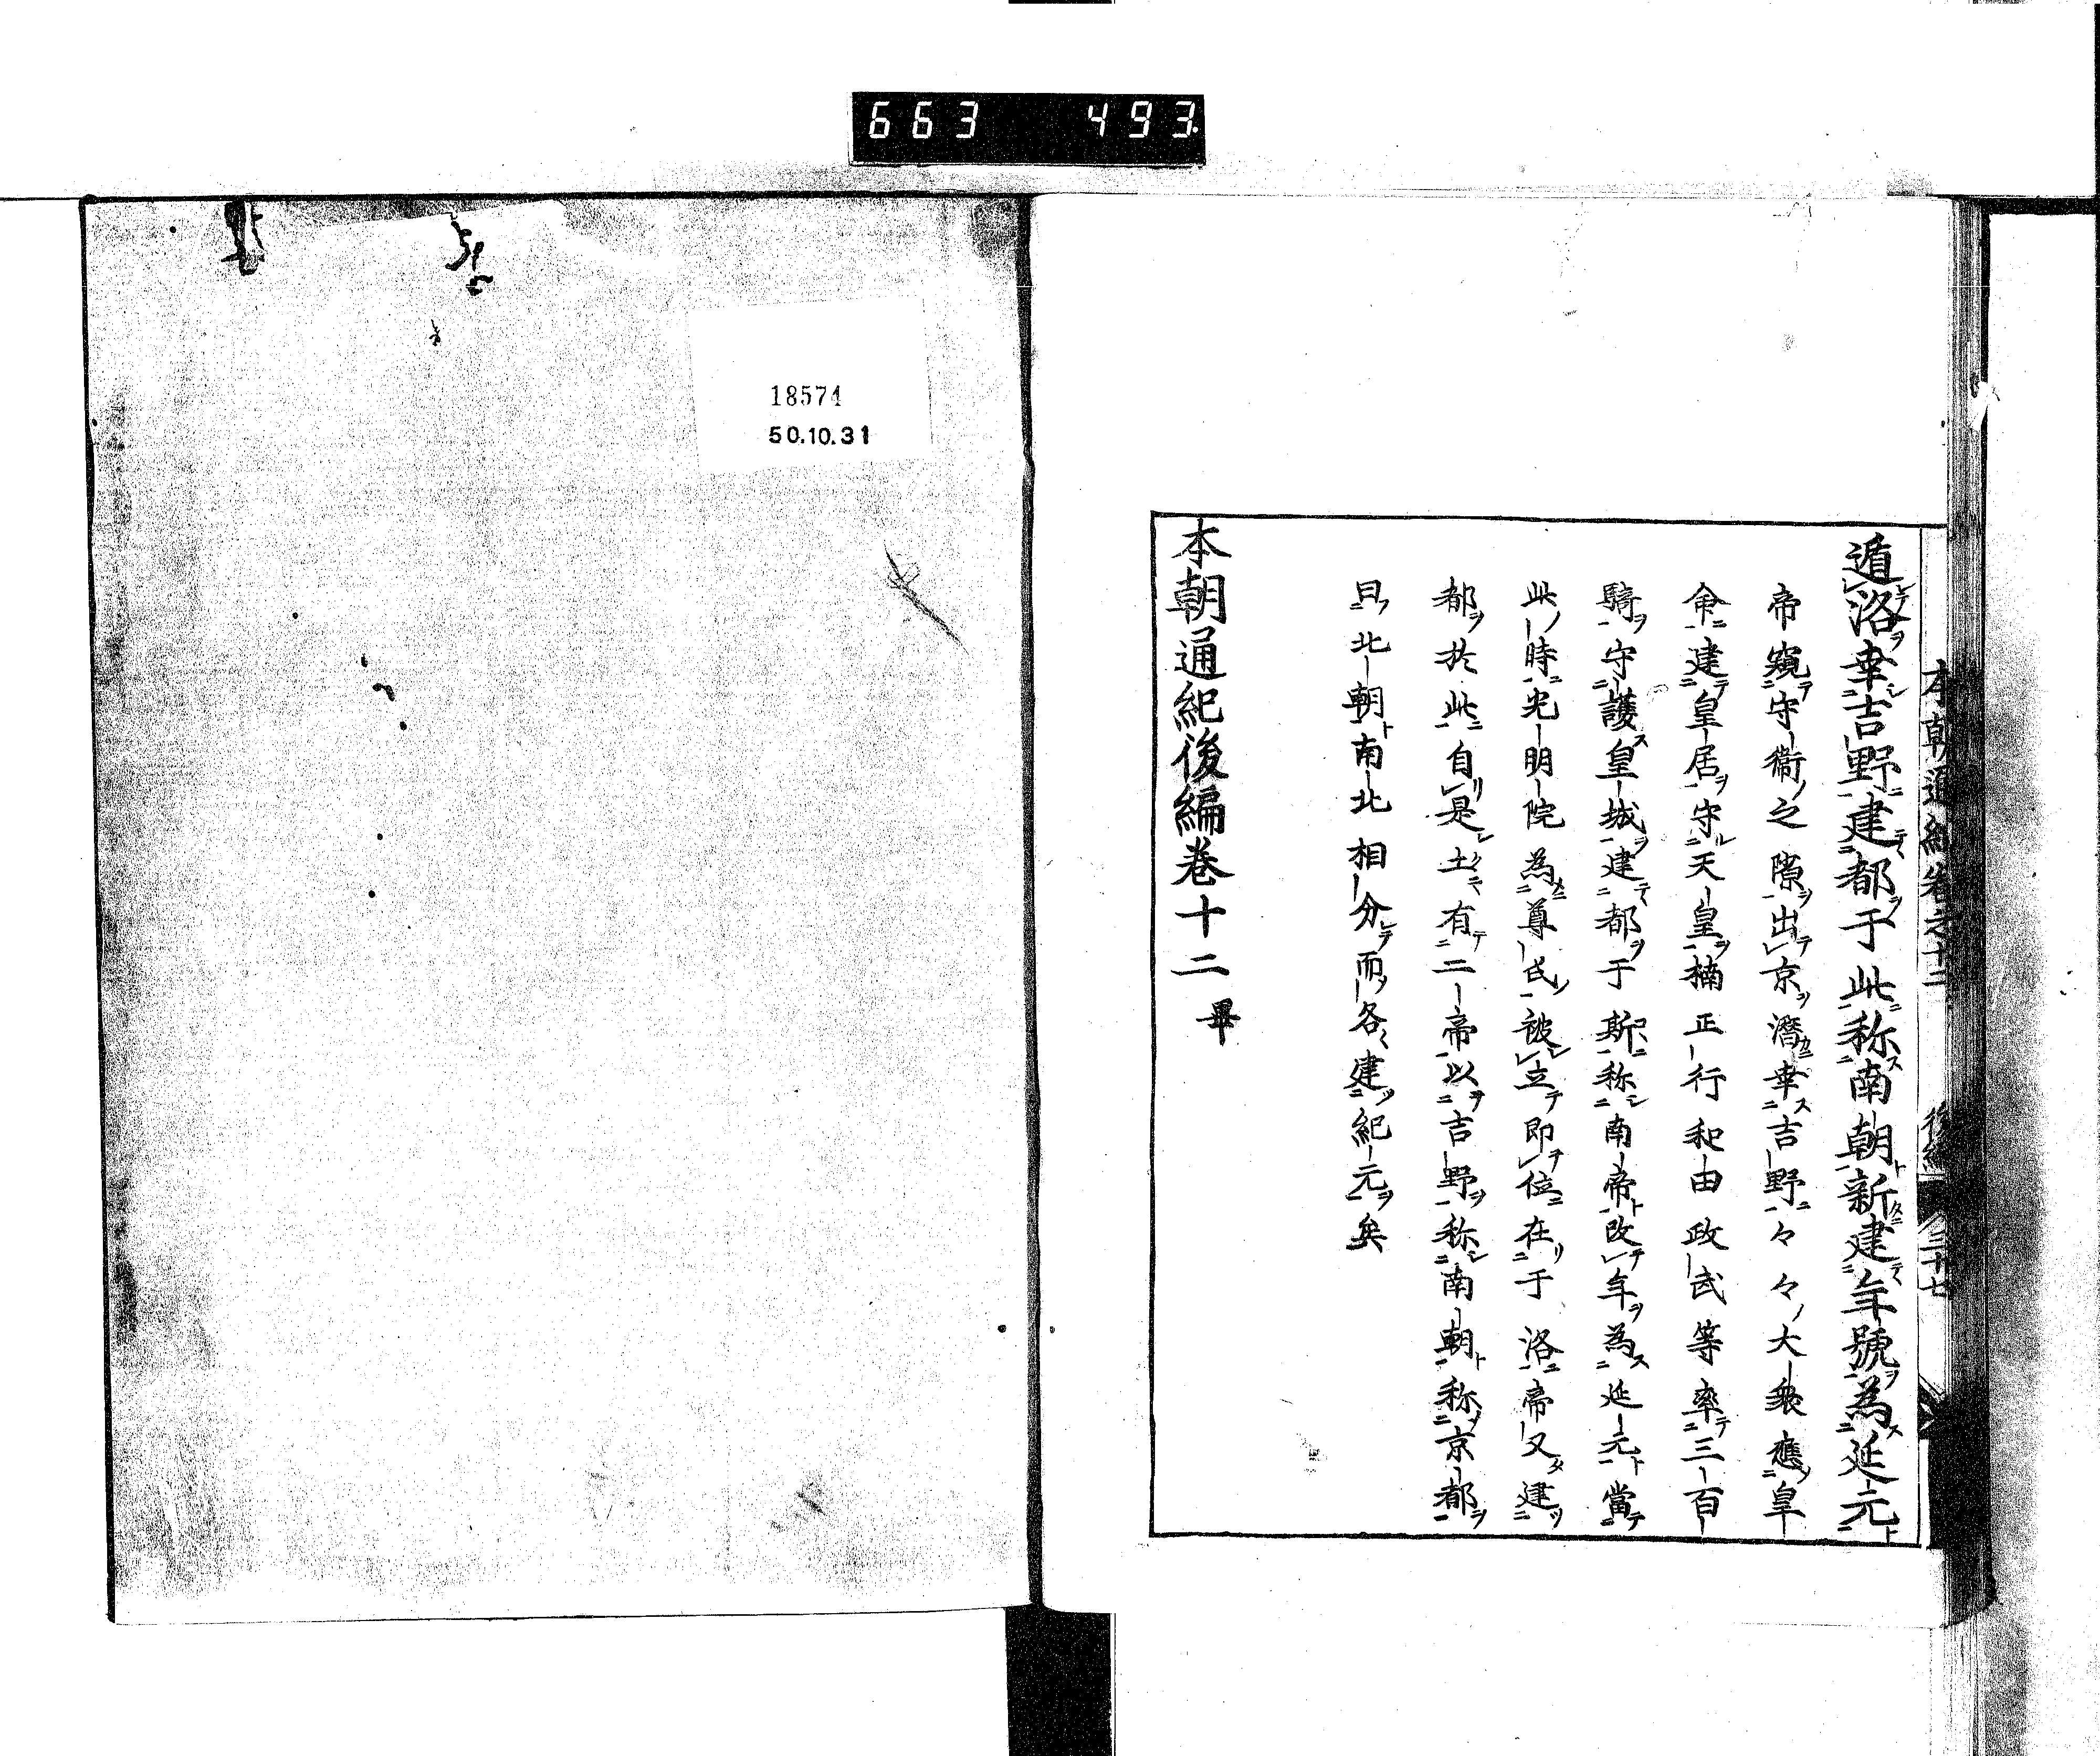 663 493.
本朝通紀卷之十二 後編 三十七
遁洛幸吉野建都于此称南朝新建年號為延元
帝窺守衞之隙出京潛幸吉野々々大衆應皇
命建皇居守天皇楠正行和田政武等率三百
騎守護皇城建都于斯称南帝改年為延元當
此時光明院為尊氏被立即位在于洛帝又建
都於此自是土有二帝以吉野称南朝称京都
曰北朝南北相分而各建紀元矣
本朝通紀後編卷十二畢
18574
50.10.31